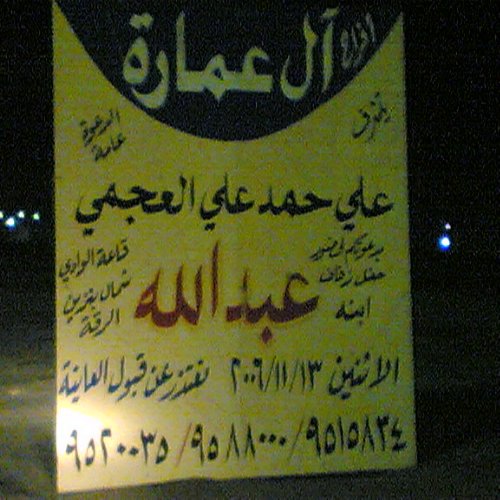 افراح
آل عمارة
يتشرف
الدعوة
عامة
علي حمد علي العجمي
بدعوتكم لحضور
حفل زفاف
ابنه
عبدالله
قاعة الوادي
شمال بنزين
الرقة
الاثنين ٢٠٠٦/١١/١٣ نعتذر عن قبول العانية
٩٥١٥٨٣٤/٩٥٨٨٠٠٠/٩٥٢٠٠٣٥